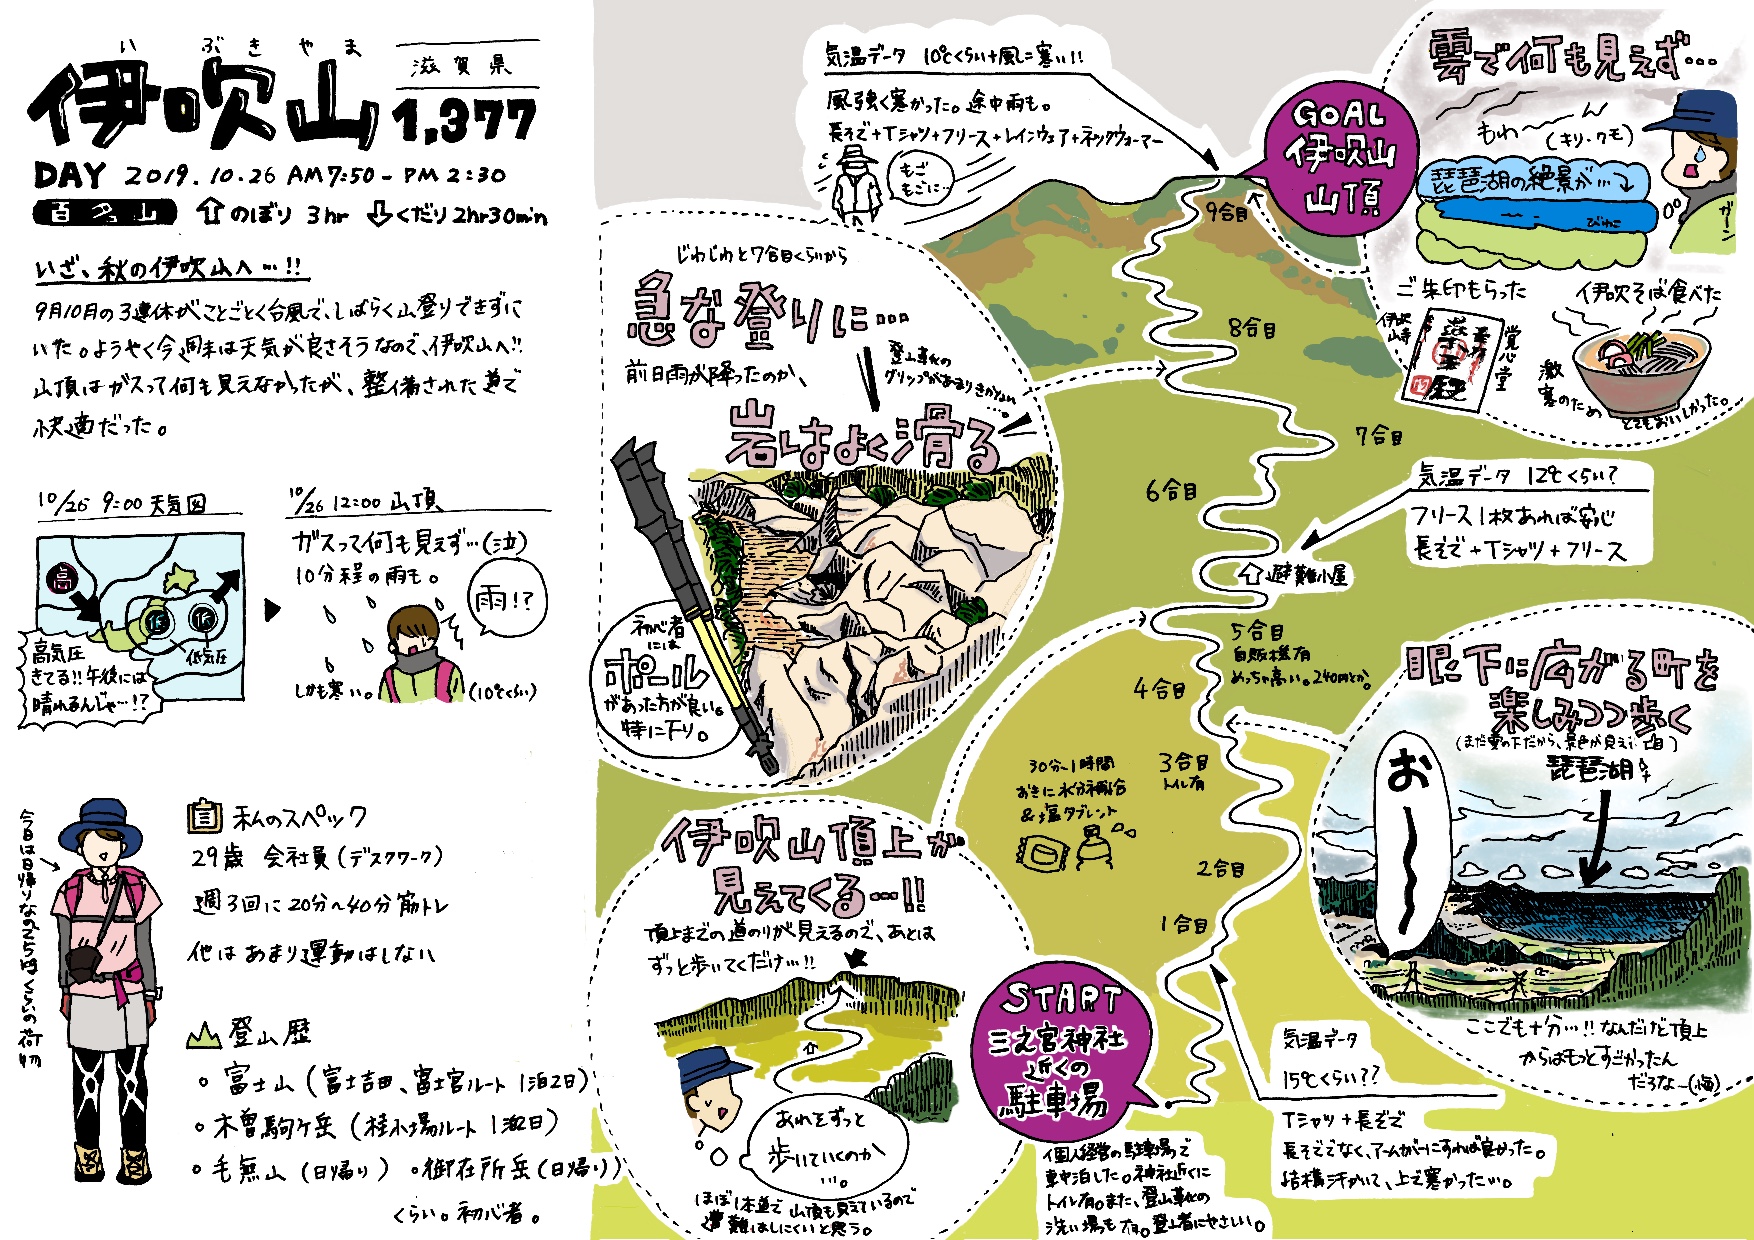 いぶきやま
伊吹山
滋賀県
1,377
DAY 2019.10.26 AM7:50-PM2:30
百名山 のぼり 3hr くだり2hr30min
いざ、秋の伊吹山へ…!!
9月10月の3連休がことごとく台風で、しばらく山登りできずに
いた。ようやく今週末は天気が良さそうなので、伊吹山へ!!
山頂はガスって何も見えなかったが、整備された道で
快適だった。
10/26 9:00 天気図
高
低
低
低気圧
高気圧
きてる!!午後には
晴れるんじゃ…!?
10/26 12:00 山頂
ガスって何も見えず…(泣)
10分程の雨も。
雨!?
しかも寒い。
(10℃くらい)
今日は日帰りなので5kgくらいの荷物
私のスペック
29歳 会社員(デスクワーク)
週3回に20分〜40分筋トレ
他はあまり運動はしない
登山歴
。富士山(富士吉田、富士宮ルート 1泊2日)
。木曽駒ケ岳(桂小場ルート 1泊2日)
。毛無山(日帰り) 。御在所岳(日帰り)
くらい。初心者。
気温データ 10℃くらい+風し=寒い!!
風強く寒かった。途中雨も。
長そで+Tシャツ+フリース+レインウェア+ネックウォーマー
もご
もごに…
GOAL
伊吹山
山頂
雲で何も見えず…
もわ〜〜
(キリ・クモ)
琵琶湖の絶景が…
びわこ
ガーン
ご朱印もらった
伊吹山寺
覚心堂
伊吹そば食べた
激寒のため
とてもおいしかった。
じわじわと7合目くらいから
急な登りに…
前日雨が降ったのか、
登山靴の
グリップがあまりきかない…。
岩はよく滑る
初心者
には
ポール
があった方が良い。
特に下り。
9合目
8合目
7合目
6合目
気温データ 12℃くらい?
フリース1枚あれば安心
長そで+Tシャツ+フリース
避難小屋
5合目
自販機有
めっちゃ高い。240円とか。
4合目
3合目
トイレ有
30分〜1時間
おきに水分補給
&塩タブレット
2合目
1合目
眼下に広がる町を
楽しみつつ歩く
(まだ雲の下だから、景色が見えてる)
琵琶湖
お〜〜
ここでも十分…!!なんだけど頂上
からはもっとすごかったん
だろな〜(悔)
伊吹山頂上が
見えてくる…!!
頂上までの道のりが見えるので、あとは
ずっと歩いてくだけ…!!
あれをずっと
歩いていくのか
…。
ほぼ1本道で山頂も見えているので
遭難はしにくいと思う。
START
三之宮神社
近くの
駐車場
個人経営の駐車場で
車中泊した。神社近くに
トイレ有。また、登山靴の
洗い場も有。登山者にやさしい。
気温データ
15℃くらい??
Tシャツ+長そで
長そででなく、アームカバーにすれば良かった。
結構汗かいて、上で寒かった…。